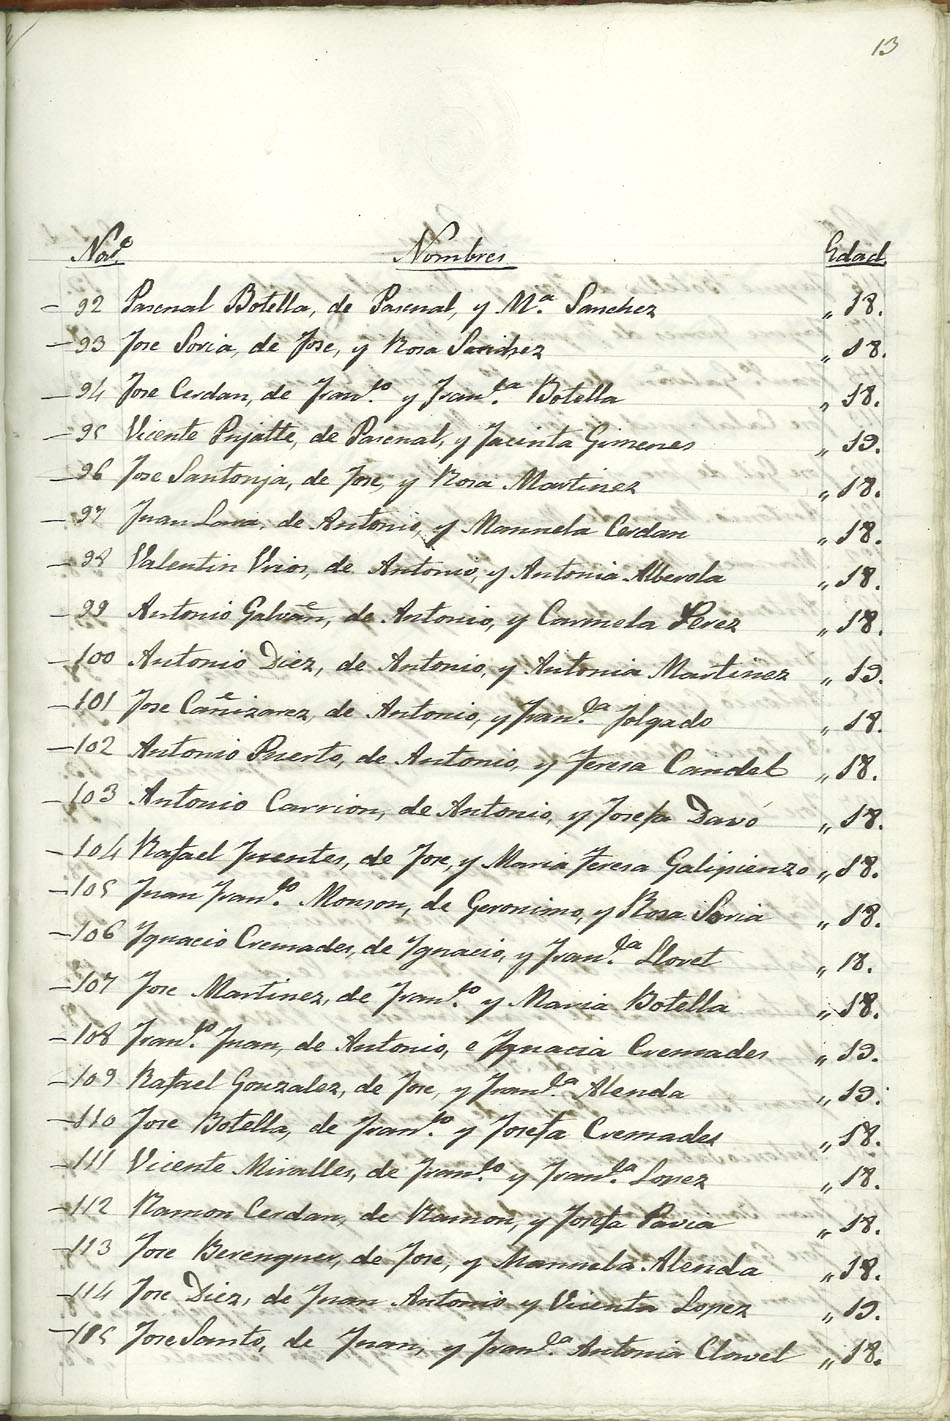 13
Nos. Nombres Edad
92 Pascual Botella, de Pascual, y Mª. Sanchez „ 18.
93 Jose Soria, de Jose, y Rosa Sanchez „ 18.
94 Jose Cerdan, de Franco. y Franca. Botella „ 18.
95 Vicente Pujalte, de Pascual, y Jacinta Gimenes „ 19.
96 Jose Santonja, de Jose, y Rosa Martinez „ 18.
97 Juan de Antonio, y Manuela Cerdan „ 18.
98 Valentin de Antonio, y Antonia Alberola „ 18.
99 Antonio Galvañ, de Antonio, y Carmela Perez „ 18.
100 Antonio Diez, de Antonio, y Antonia Martinez „ 19.
101 Jose Cañizarez, de Antonio, y Franca. Folgado „ 18.
102 Antonio Puerto, de Antonio, y Teresa Candel „ 18.
103 Antonio Carrion, de Antonio, y Josefa Davó „ 18.
104 Rafael Fuentes, de Jose, y Maria Teresa Galipienzo „ 18.
105 Juan Franco. Monson, de Geronimo, y Rosa Soria „ 18.
106 Ignacio Cremades, de Ignacio, y Franca. Lloret „ 18.
107 Jose Martinez, de Franco. y Maria Botella „ 18.
108 Franco. Juan, de Antonio, e Ignacia Cremades „ 19.
109 Rafael Gonzalez, de Jose, y Franca. Alenda „ 19.
110 Jose Botella, de Franco. y Josefa Cremades „ 18.
111 Vicente Miralles, de Franco. y Franca. Lopez „ 18.
112 Ramon Cerdan, de Ramon, y Josefa Pavia „ 18.
113 Jose Berenguer, de Jose, y Manuela Alenda „ 18.
114 Jose Diez, de Juan Antonio y Vicenta Lopez „ 19.
115 Jose Santo, de Juan, y Franca. Antonia Clowet „ 18.